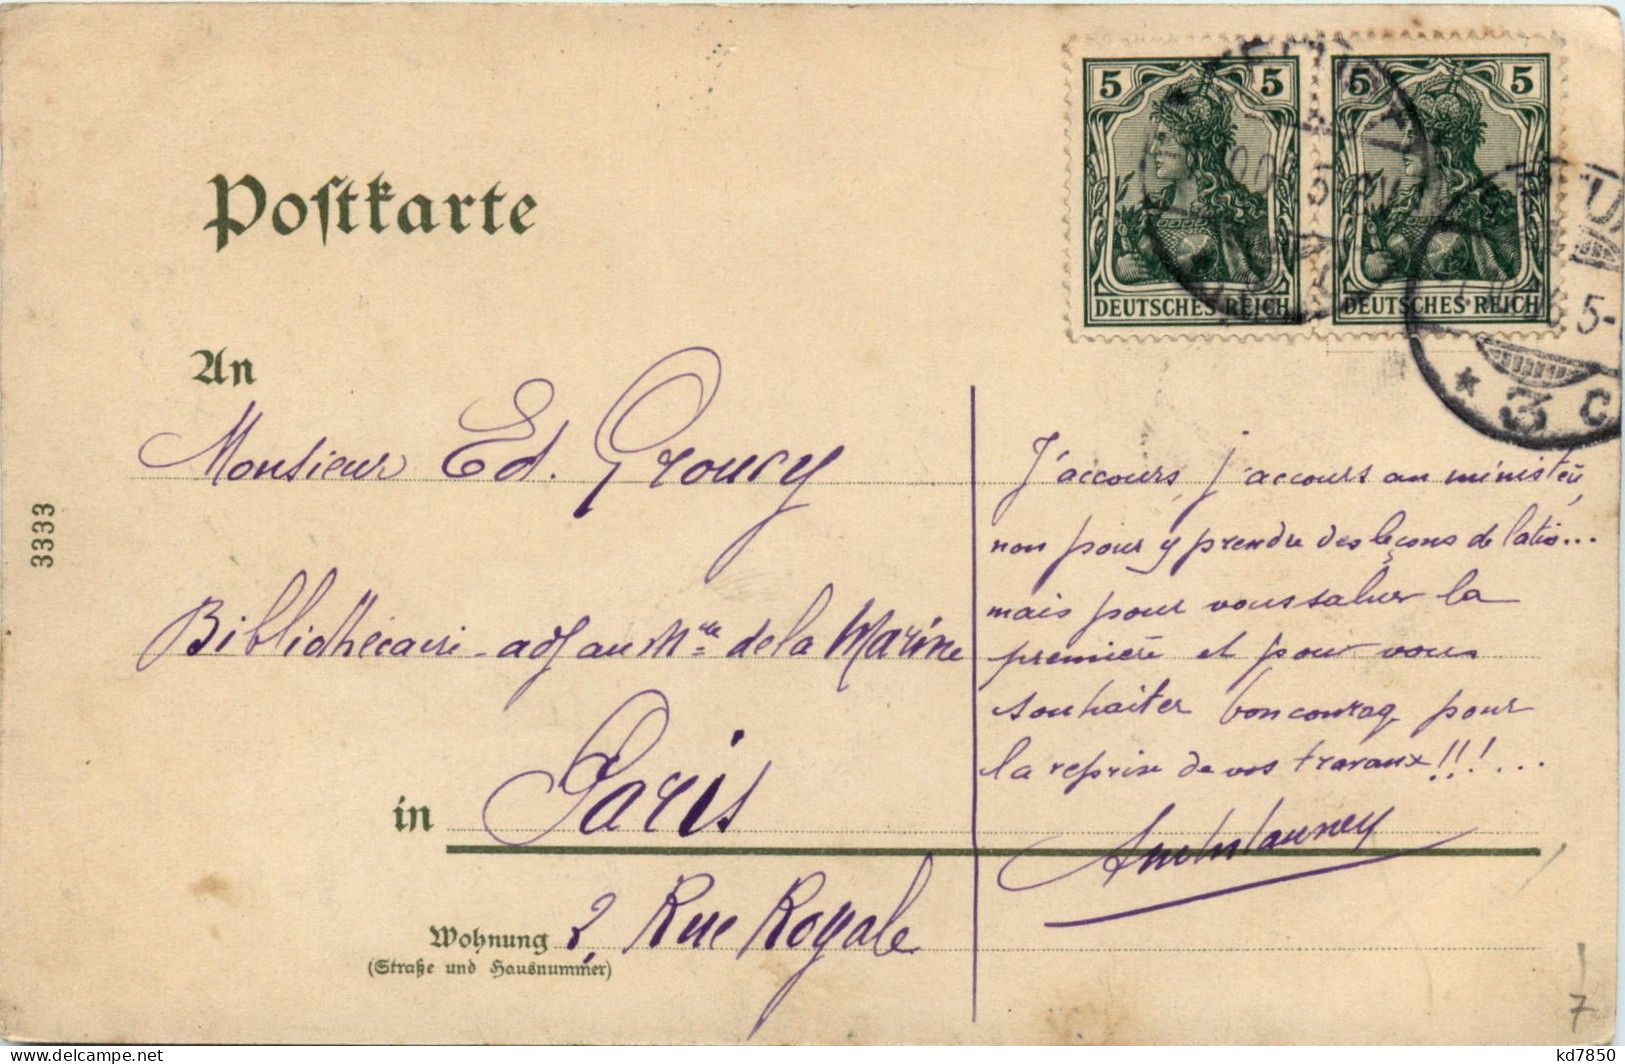 Postkarte
5 5
5 5
DEUTSCHES REICH
DEUTSCHES REICH
5-
* 3 c
An
Monsieur Ed. Groucy
Bibliothécaire-adj au Mre de la Marine
in Paris
Wohnung 2, Rue Royale
(Straße und Hausnummer)
3333
J'accours, j'accours au ministère,
non pour y prendre des leçons de latin...
mais pour vous saluer la
première et pour vous
souhaiter bon courage pour
la reprise de vos travaux!!!...
7
kd7850